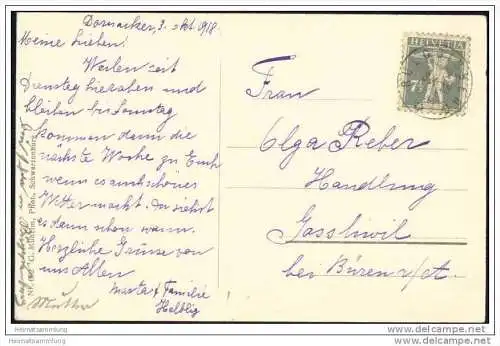 3. Okt. 1918.
Meine Lieben!
Weilen seit
Dienstag hieroben und
bleiben bis Sonntag
kommen dann die
nächste Woche zu Euch
wenn es auch schönes
Wetter macht. Du siehst
es dann schon wann.
Herzliche Grüsse von
uns Allen
Marta & Familie
Helblig
Mutter
Schwarzenburg
HELVETIA
Frau
Olga Reber
Handlung
Gossliwil
bei Büren a/A.
Heimatsammlung
Heimatsammlung